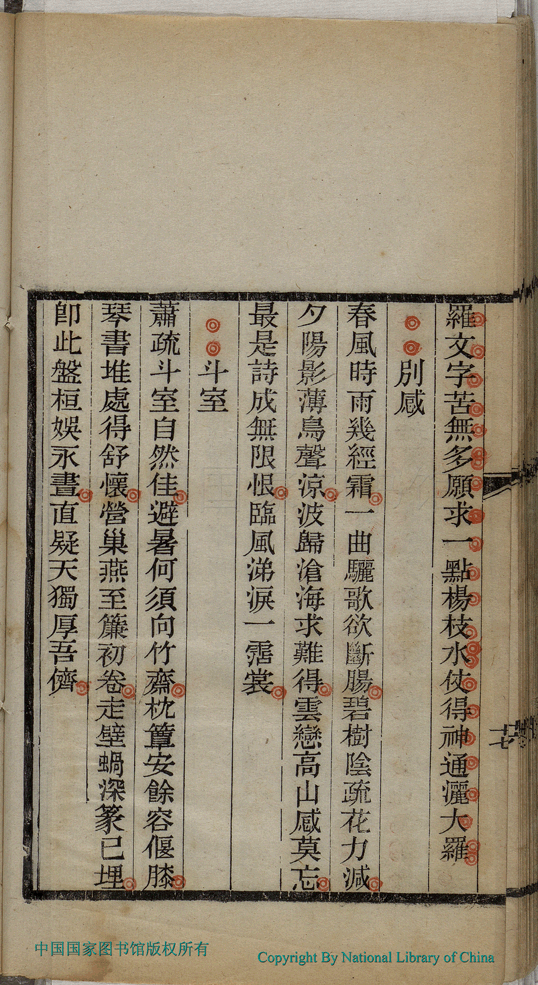 羅文字苦無多願求一點楊枝水使得神通灑大羅
別感
春風時雨幾經霜一曲驪歌欲斷腸碧樹陰疏花力減
夕陽影薄鳥聲涼波歸滄海求難得雲戀高山感莫忘
最是詩成無限恨臨風涕淚一霑裳
斗室
蕭疏斗室自然佳避暑何須向竹齋枕簟安餘容偃膝
琴書堆處得舒懷營巢燕至簾初卷走壁蝸深篆已埋
卽此盤桓娛永晝直疑天獨厚吾儕
十七
中国国家图书馆版权所有
Copyright By National Library of China